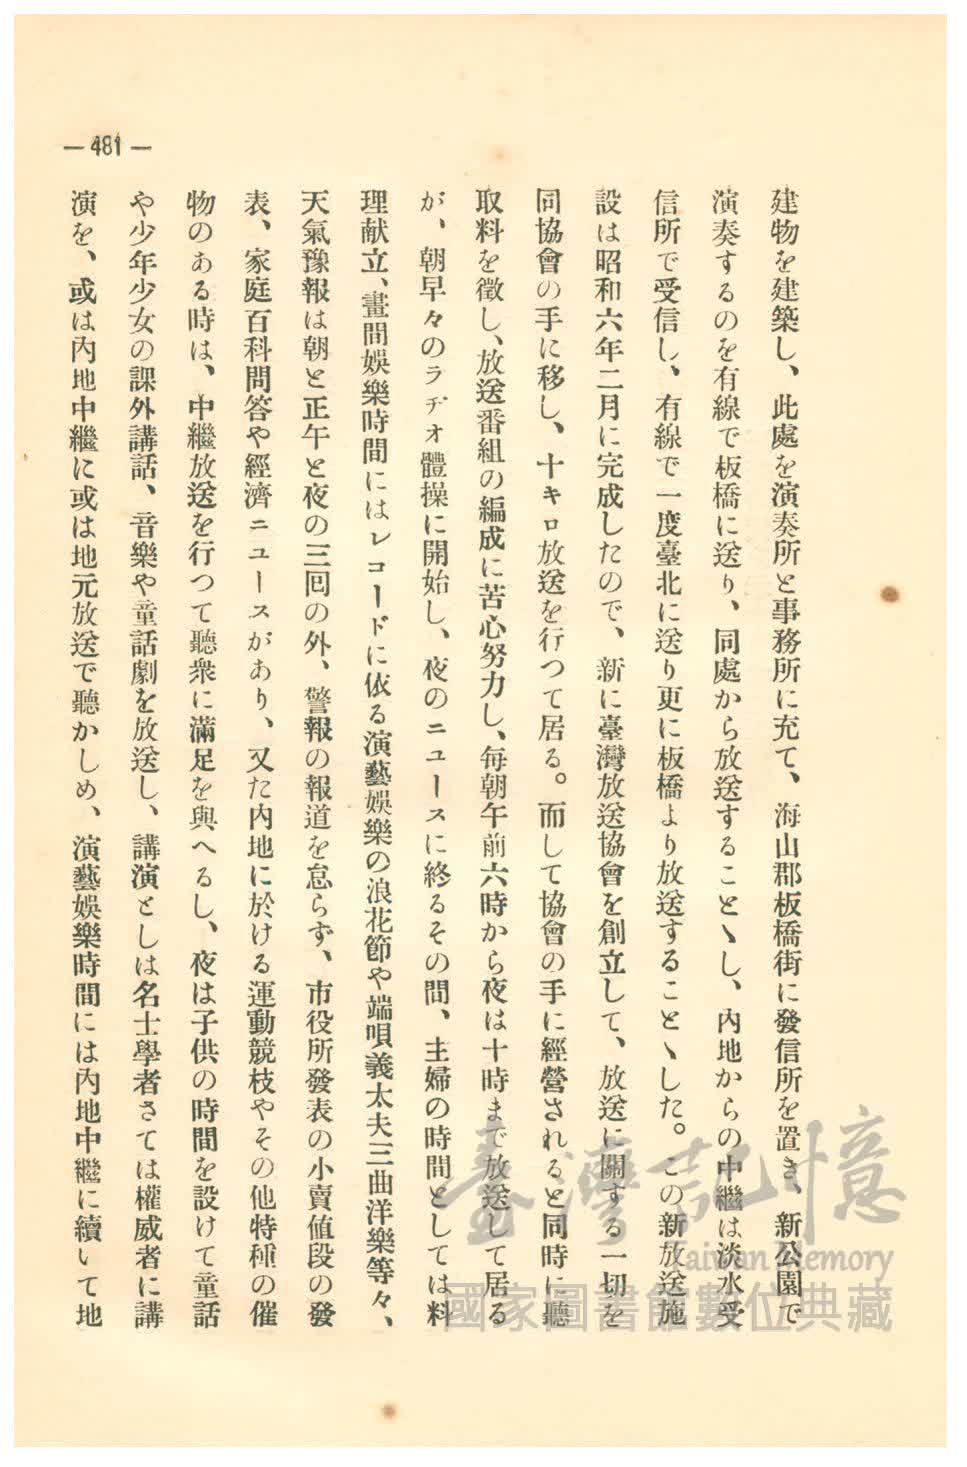 — 481 —
建物を建築し、此處を演奏所と事務所に充て、海山郡板橋街に發信所を置き、新公園で
演奏するのを有線で板橋に送り、同處から放送することゝし、內地からの中繼は淡水受
信所で受信し、有線で一度臺北に送り更に板橋より放送することゝした。この新放送施
設は昭和六年二月に完成したので、新に臺灣放送協會を創立して、放送に關する一切を
同協會の手に移し、十キロ放送を行つて居る。而して協會の手に經營されると同時に聽
取料を徵し、放送番組の編成に苦心努力し、每朝午前六時から夜は十時まで放送して居る
が、朝早々のラヂオ體操に開始し、夜のニュースに終るその間、主婦の時間としては料
理献立、晝間娛樂時間にはレコードに依る演藝娛樂の浪花節や端唄義太夫三曲洋樂等々、
天氣豫報は朝と正午と夜の三回の外、警報の報道を怠らず、市役所發表の小賣値段の發
表、家庭百科問答や經濟ニュースがあり、又た內地に於ける運動競枝やその他特種の催
物のある時は、中繼放送を行つて聽衆に滿足を與へるし、夜は子供の時間を設けて童話
や少年少女の課外講話、音樂や童話劇を放送し、講演としは名士學者さては權威者に講
演を、或は內地中繼に或は地元放送で聽かしめ、演藝娛樂時間には內地中繼に續いて地
臺灣記憶
Taiwan Memory
國家圖書館數位典藏